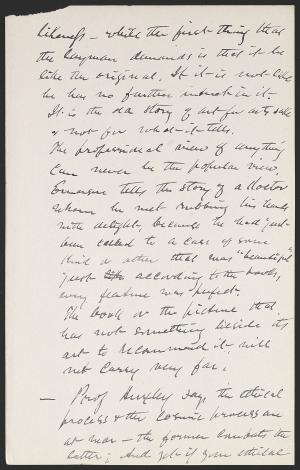 likeness – while the first thing that
the layman demands is that it be
like the original. If it is not like
he has no further interest in it.
It is the old story of art for arts sake
& not for what it tells.
The professional view of anything
can never be the popular view.
Emerson tells the story of a doctor
whom he met rubbing his hands
with delight, because he had "just
been called to a case of some
kind or other that was "beautiful"
just according to the books,
every feature was perfect.
The book or the picture that
has not something beside its
art to recommend it, will
not carry very far.
— Prof Huxley says, the ethical
process & the cosmic process are
at war – the former combats the
latter; And yet if your ethical